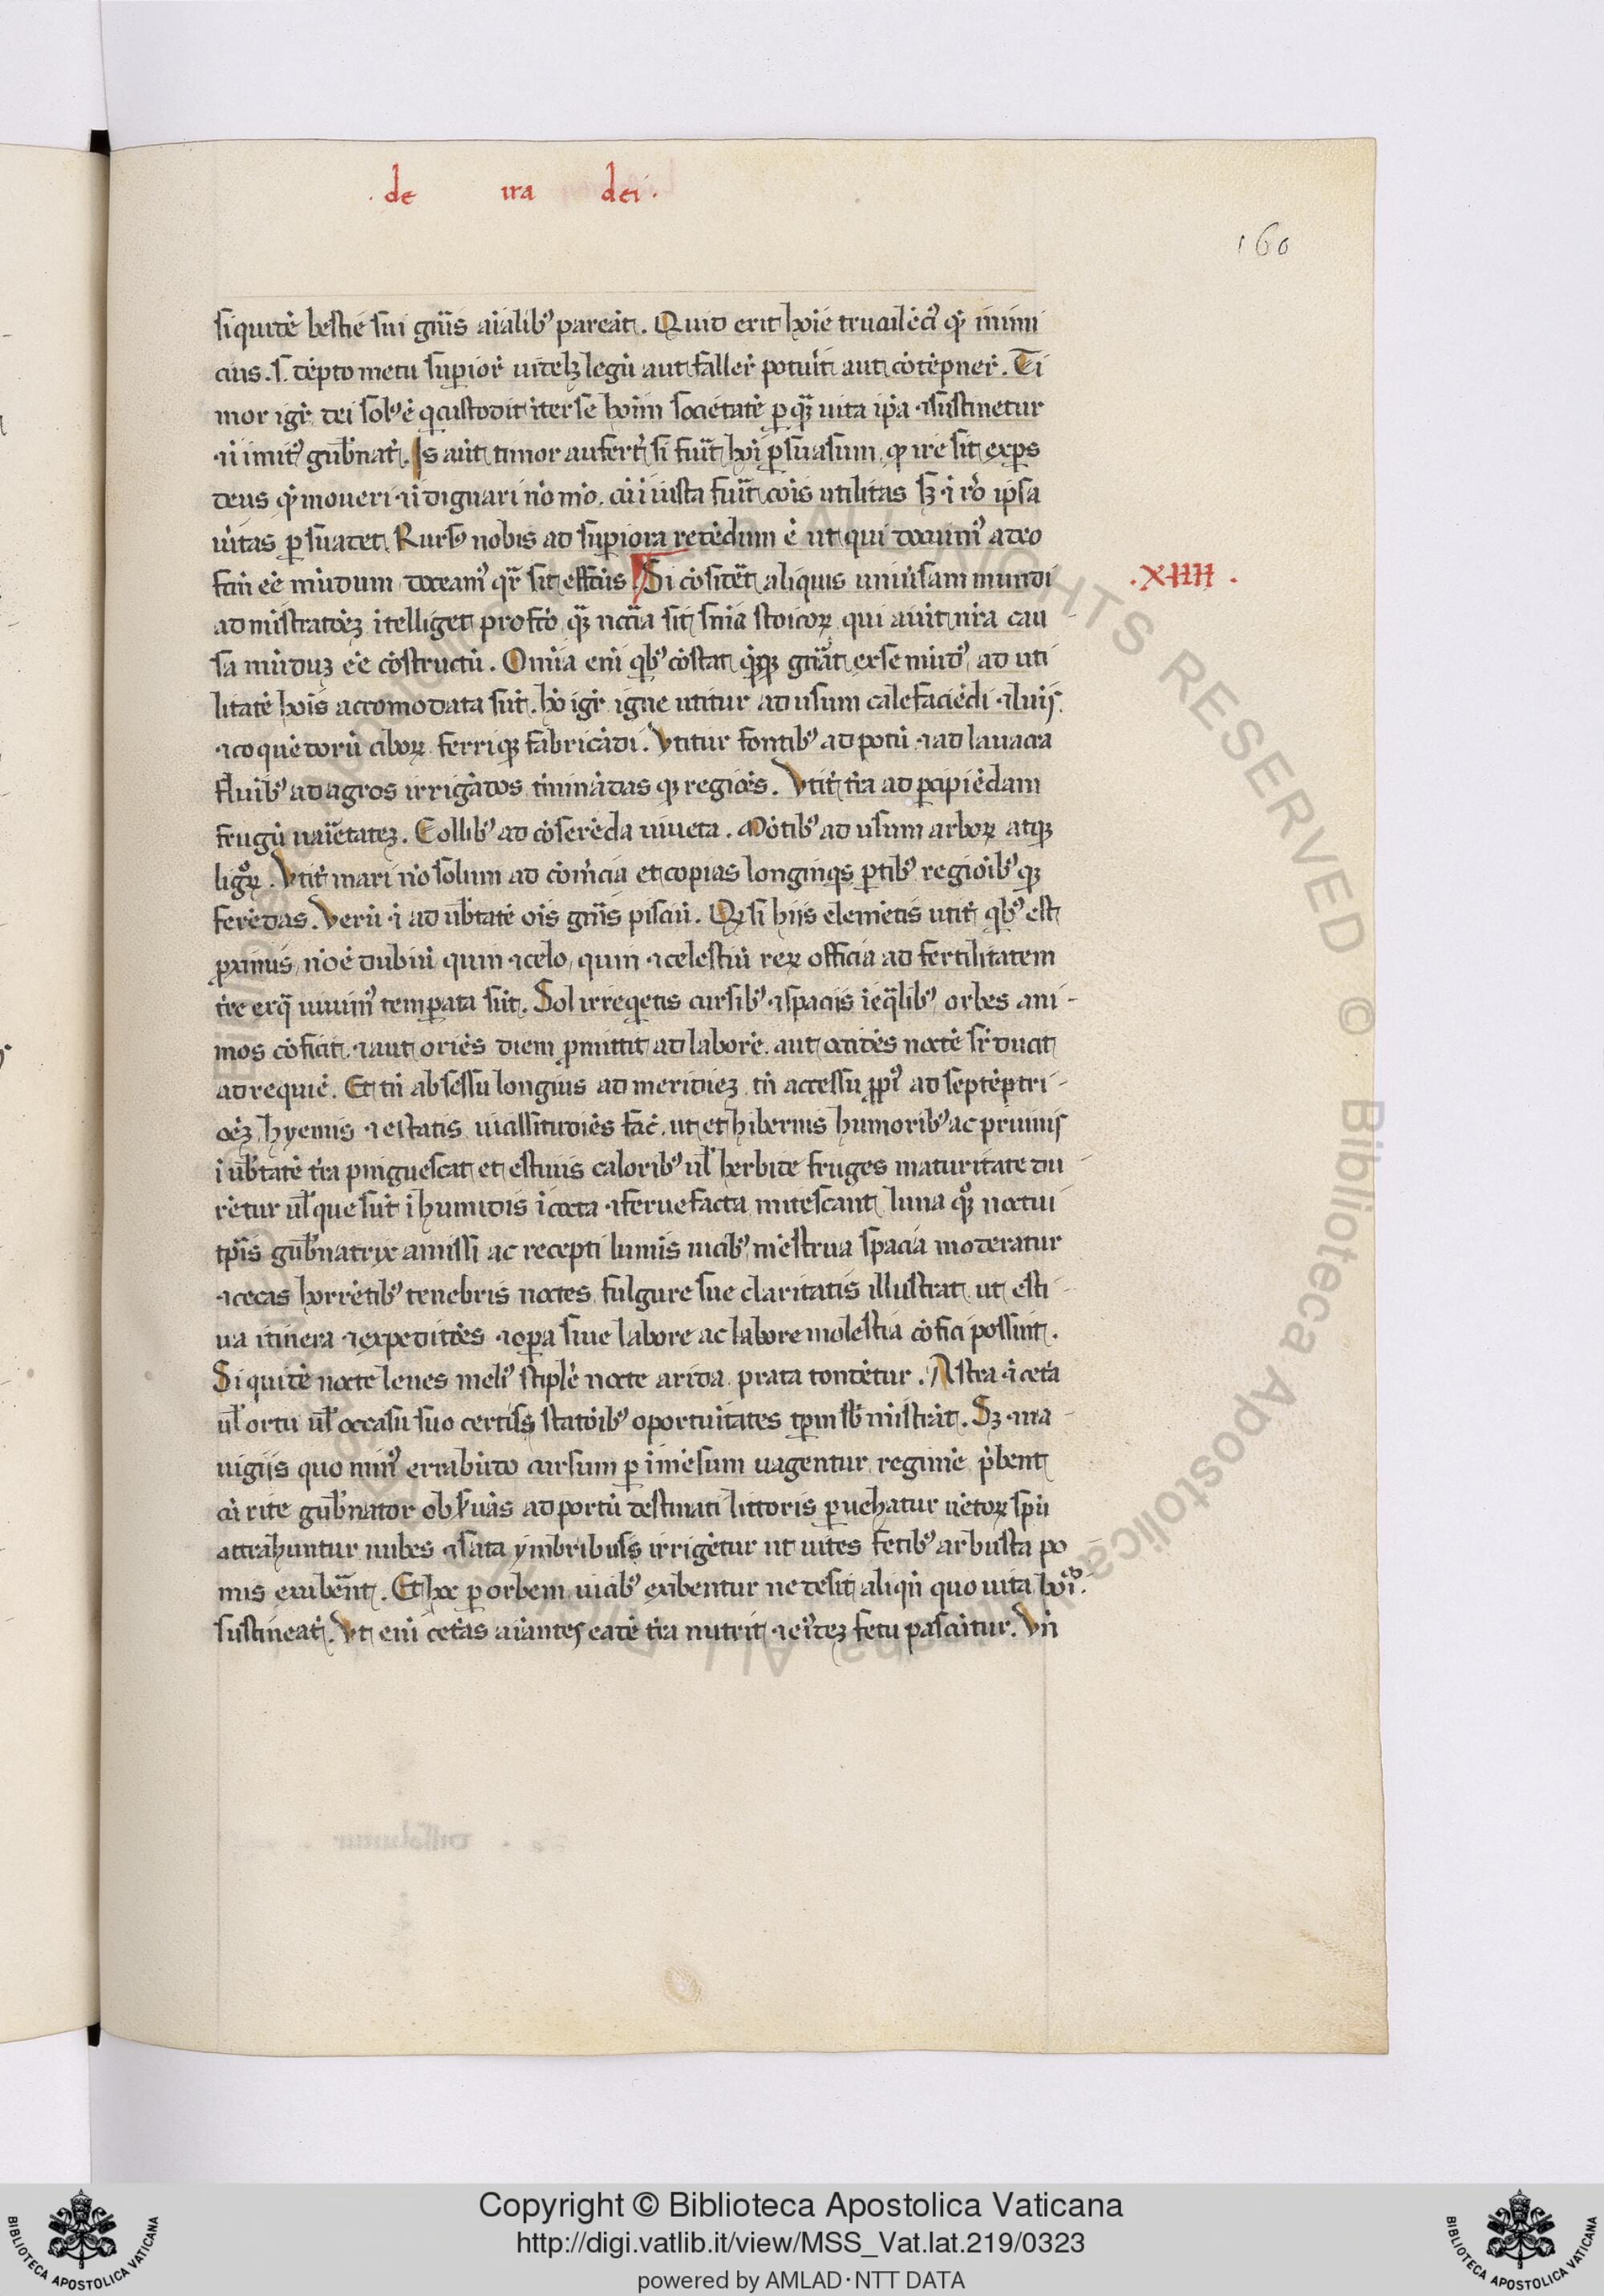 . de ira dei .
160
siquidē bestie sui gn̄is aīalib9 parcāt. Quid erit hoīe truculēci9 qď inimi
cius. s. dēpto metu supior̄ uidelȝ legū aut faller̄ potūit aut cōtēpner̄. Ti
mor igr̄ dei sol9 ē q custodit īter se hoīm societatē p quā uita ip̄a ⁊ sustinetur
⁊ īimit9 gub̄nat̄. Is aūt timor aufert̄ si fūit hoī p suasum qď ire sit exps
deus qď moueri ⁊ īdignari nō mō. cū iusta fūit cōis utilitas sȝ ⁊ ī rō ipsa
ūitas p suadet. Rurs9 nobis ad supiora redēdum ē ut qui docuim9 a deo
fctū ēē mūdum doceam9 qr̄ sit effctus. Si cōsidēt aliquis uniūsam mundi
admistratōēȝ ītelliget profcō quā ncc̄ia sit snīa stoicoꝝ qui aiūt nr̄a cau
sa mūduȝ ēē cōstructū. Omīa enī qb9 cōstat qꝫ gnāt ex se mūd9 ad uti
litatē hoīs accomodata sūt. hō igr̄ igne utitur ad usum calefaciēdi ⁊ luīs.
⁊ coquēdorū ciboꝝ ferriqꝫ fabricādi. Vtitur fontib9 ad potū ⁊ ad lauacra
fluīb9 ad agros irrigādos t̄minādas qꝫ regiōes. Vtit̄ t̄ra ad pcipiēdam
frugū uaīetateȝ. Collib9 ad cōserēda uiueta. Mōtib9 ad usum arboꝝ atqꝫ
lignoꝝ. Vtit̄ mari nō solum ad cōm̄cia et copias longinqs ptib9 regiōib9 qꝫ
ferēdas. Verū ⁊ ad ub̄tatē oīs gn̄is pisciū. Qď si hijs elemētis utit̄ qb9 est
pximus, nō ē dubiū quin ⁊ celo, quin ⁊ celestiū reꝝ officia ad fertilitatem
t̄re ex q̄ uiuim9 tempata sūt. Sol irreqetis cursib9 ⁊ spaciis īeq̄lib9 orbes ani-
mos cōficit. ⁊ aut oriēs diem pmittit ad laborē. aut occidēs noctē sr̄ducit
ad requiē. Et tū absessu longius ad meridieȝ tū accessu ppi9 ad septēptri-
ōēȝ hyemis ⁊ estatis uicissitudiēs fac̄. ut et hibernis humorib9 ac pruinis
ī ub̄tatē t̄ra pinguescat et estiuis calorib9 ul̄ herbide fruges maturitate du-
rētur ul̄ que sūt ī humidis īcocta ⁊ feruefacta mitescant luna qꝫ noctui
tp̄is gub̄natrix amissi ac recepti lumīs uicib9 mēstrua spacia moderatur
⁊ cecas horrētib9 tenebris noctes fulgure sue claritatis illustrat. ut esti-
ua itinera ⁊ expeditōēs ⁊ opa siue labore ac labore molestia cōfici possint.
Siquidē nocte leues meli9 stiplē nocte arida prata tondētur. Astra ⁊ cet̄a
ul̄ ortu ul̄ occasu suo certiss statōib9 oportūitates tpm sb̄ mistrāt. Sȝ ⁊ na-
uigiis quo min9 errabūdo cursum p īmēsum uagentur regimē p̄bent
cū rite gub̄nator obs̄uās ad portū destinati littoris p uehatur uētoꝝ spū
attrahuntur nubes ⁊ sata ymbribuss irrigētur ut uites fetib9 arbusta po
mis exub̄ent. Et hec p orbem uicib9 exibentur ne desit aliqn̄ quo uita hoīm
sustineat̄. Vt enī cet̄as aīantes eadē t̄ra nutrit ⁊ ei9deȝ fetu pascūtur. Vn̄
.XIIII.
© Biblioteca Apostolica Vaticana ALL RIGHTS RESERVED
Copyright © Biblioteca Apostolica Vaticana
http://digi.vatlib.it/view/MSS_Vat.lat.219/0323
powered by AMLAD·NTT DATA
BIBLIOTECA APOSTOLICA VATICANA
BIBLIOTECA APOSTOLICA VATICANA